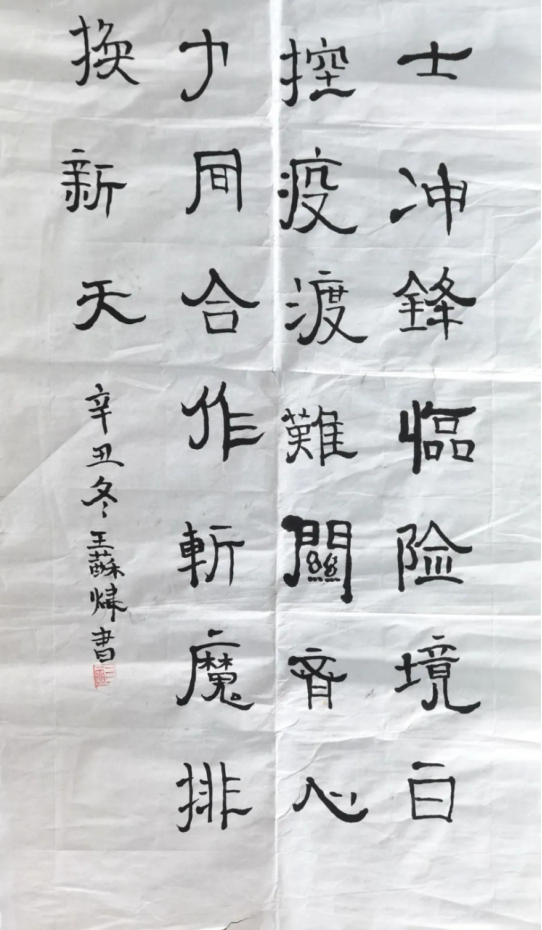 士冲鋒臨险境白
控疫渡難關斉心
力同合作斬魔排
換新天
辛丑冬王蘇煒書